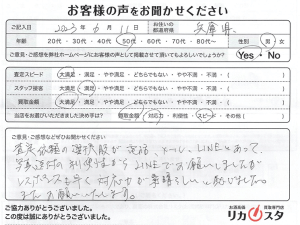 お客様の声をお聞かせください
ご記入日 2023年6月11日 お住いの都道府県 兵庫県
年齢 20代・30代・40代・50代・60代・70代・80代〜 性別 男・女
ご意見・ご感想を弊社ホームページにお客様の声として掲載させて頂いてもよろしいでしょうか? Yes・No
査定スピード 大満足・満足・やや満足・どちらでもない・やや不満・不満・( )
スタッフ接客 大満足・満足・やや満足・どちらでもない・やや不満・不満・( )
買取金額 大満足・満足・やや満足・どちらでもない・やや不満・不満・( )
当店をお選びいただきました決め手は? 買取金額・対応力・利便性・スピード・その他( )
ご意見・ご感想などぜひお聞かせください
査定依頼の選択肢が電話、メール、LINEとあって、
写真送付の利便性からLINEでお願いしましたが
レスポンスも早く対応力が素晴らしいと感じました。
またお願いいたします。
ご協力ありがとうございました。
この度は誠にありがとうございました。
お酒高価買取専門店
リカスタ